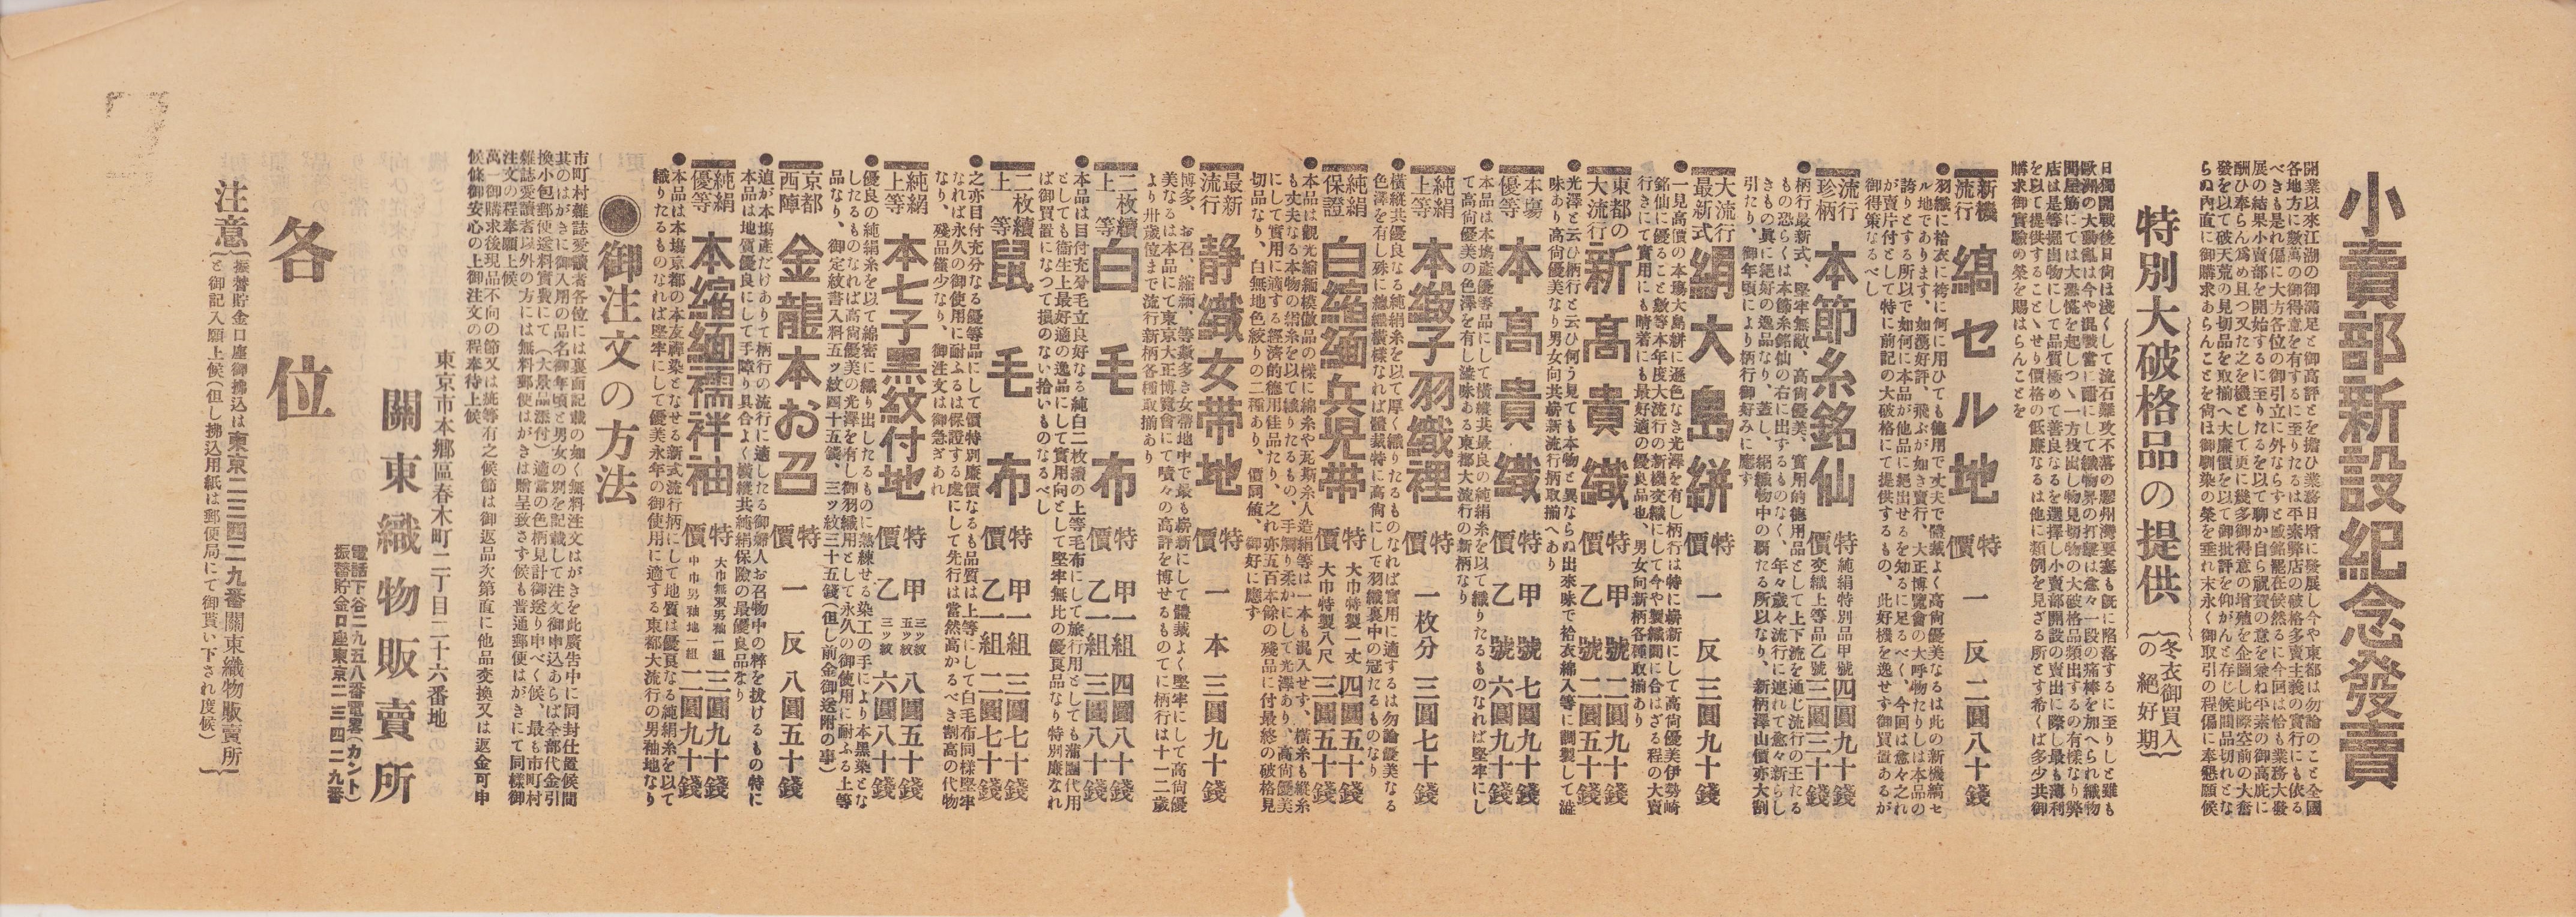 小賣部新設紀念發賣
開業以來江湖の御滿足と御高評とを擔ひ業務日增に發展し今や東都は勿論のこと全國
各地方に數萬の御得意を有するに至りたるは平素弊店の破格多賣主義の實行にも依る
べきも是れ偏に大方各位の御引立に外ならずと感銘罷在候然るに今回は恰も業務大發
展の結果小賣部を開始するに至りたるを以て聊か自ら祝賀の意を兼ね平素の御高庇に
酬ひ奉らん爲め且つ又た之を機として更に幾多御得意の增殖を企圖し此際空前の大奮
發を以て破天荒の見切品を取揃へ大廉價を以て御批評を仰がんと存じ候間品切れとな
らぬ內直に御購求あらんことを尙ほ御馴染の榮を垂れ末永く御取引の程偏に奉懇願候
特別大破格品の提供
(冬衣御買入
の絕好期)
日獨開戰後日尙ほ淺くして流石難攻不落の膠州灣要塞も旣に陷落するに至りしと雖も
歐洲の大動亂は今や混戰當に酣にして織物界の打擊は愈々一段の痛棒を加へられ織物
問屋筋にては大恐慌を起しつゝ一方投出し物見切物の大破格品頻出するの有樣なり弊
店は是等掘出物にして品質極めて善良なるを選擇し小賣部開設の賣出に際し最も薄利
を以て提供することゝせり價格の低廉なるは他に類例を見ざる所とす希くば多少共御
購求御實驗の榮を賜はらんことを
新機流行 縞セル地 特價 一反 二圓八十錢
●羽織に袷衣に袴に何に用ひても德用で丈夫で體裁よく高尙優美なるは此の新機縞セ
ル地であります、如湧好評、飛ぶが如き賣行、大正博覽會の大呼物たりしは本品の
誇りとする所以で如何に本品が他品に絕出せるを知るに足るべく、今回は愈々之れ
が賣片付として特に前記の大破格にて提供するもの、此好機を逸せず御買置あるが
御得策なるべし
流行珍柄 本節糸銘仙 特價 純絹特別品甲號 四圓九十錢
變織上等品乙號 三圓三十錢
●柄行最新式、堅牢無敵、高尙優美、實用的德用品として上下流を通じ流行の王たる
もの恐らくは本節糸銘仙の右に出するものなく、年々歲々流行に連れて愈々新らし
きもの眞に絕好の逸品なり、蓋し、絹織物中の覇たる所以なり、新柄澤山價亦大割
引たり、御年頃により柄行御好みに應ず
大流行最新式 絹大島絣 特價 一反 三圓九十錢
●一見高價の本塲大島絣に遜色なき光澤を有し柄行は特に嶄新にして高尙優美伊勢崎
銘仙に優ること數等本年度大流行の新機交織にして今や製織間に合はざる程の大賣
行きにて實用にも晴着にも最好適の優良品也、男女向新柄各種取揃あり
東都の大流行 新高貴織 特價 甲號 二圓九十錢
乙號 二圓五十錢
●光澤と云ひ柄行と云ひ何う見ても本物と異ならぬ出來味で袷衣綿入等に調製して澁
味あり高尙優美なり男女向共嶄新流行柄取揃へあり
本塲優等 本高貴織 特價 甲號 七圓九十錢
乙號 六圓九十錢
●本品は本塲產優等品にして橫縱共最良の純絹糸を以て織りたるものなれば堅牢にし
て高尙優美の色澤を有し澁味ある東都大流行の新柄なり
純絹上等 本緞子羽織裡 特價 一枚分 三圓七十錢
●橫縱共優良なる純絹糸を以て厚く織りたるものなれば實用に適するは勿論優美なる
色澤を有し殊に總織模樣なれば體裁特に高尙にして羽織裏中の冠たるものなり
純絹保證 白縮緬兵兒帶 特價 大巾特製一丈 四圓五十錢
大巾特製八尺 三圓五十錢
●本品は觀光縮緬模倣品の樣に綿糸や瓦斯糸人造絹等は一本も混入せず、橫糸も縱糸
も丈夫なる本物の絹糸を以て織りたるもの、手觸り柔かにして光澤あり、高尙優美
にして實用に適する經濟的德用佳品たり、之れ亦五百本餘の殘品に付最終の破格見
切品なり、白無地色絞りの二種あり、價同値、御好に應ず
最新流行 靜織女帶地 特價 一本 三圓九十錢
●博多、お召、縮緬、等數多き女帶地中で最も嶄新にして體裁よく堅牢にして高尙優
美なるは本品にて東京大正博覽會にて嘖々の高評を博せるものてに柄行は十一二歲
より卅歲位まで流行新柄各種取揃あり
二枚續上等 白毛布 特價 甲一組 四圓八十錢
乙一組 三圓八十錢
●本品は目付充分毛立良好なる純白二枚續の上等毛布にして旅行用としても蒲團代用
としても衞生上最好適の逸品にして實用向として堅牢無比の優良品なり特別廉なれ
ば御買置になつて損のない拾いものなるべし
二枚續上等 鼠毛布 特價 甲一組 三圓七十錢
乙一組 二圓七十錢
●之亦目付充分なる優等品にして價特別廉價なるも品質は上等にして白毛布同樣堅牢
なれば永久の御使用に耐ふるは保證する處にして先行は當然高かるべき割高の代物
なり、殘品僅少なり、御注文は御急ぎあれ
純絹上等 本七子黑紋付地 特價 甲 三ッ紋五ッ紋 八圓五十錢
乙 三ッ紋 六圓八十錢
●優良の純絹糸を以て綿密に織り出したるものに熟練せる染工の手により本黑染とな
したるものなれば高尙優美の光澤を有し御羽織用として永久の御使用に耐ふる上等
品なり、御定紋書入料五ッ紋四十五錢、三ッ紋三十五錢(但し前金御送附の事)
京都西陣 金龍本お召 特價 一反 八圓五十錢
●追が本塲產だけありて柄行の流行に適したる御婦人お召物中の粹を拔けるもの特に
本品は地質優良にして手障り具合よく橫縱共純絹保險の最優良品なり
純絹優等 本縮緬襦袢袖 特價 大巾無双男袖一組 三圓九十錢
中巾男袖地一組 二圓九十錢
●本品は本塲京都の本友禪染となせる新式流行柄にして地質は優良なる純絹糸を以て
織りたるものなれば堅牢にして優美永年の御使用に適する東都大流行の男袖地なり
●御注文の方法
市町村雜誌愛讀者各位には裏面記載の如く無料注文はがきを此廣告中に同封仕置候間
其のはがきに御入用の品名御年頃と男女の別を記載して注文御申込あらば全部代金引
換小包郵便送料實費にて(大景品添付)適當の色柄見計御送り申べく候、最も市町村
雜誌愛讀者以外の方には無料郵便はがきは贈呈致さず候も普通郵便はがきにて同樣御
注文の程奉願上候
萬一御購求後現品不向の節又は疵等有之候節は御返品次第直に他品變換又は返金可申
候條御安心の上御注文の程奉待上候
東京市本鄕區春木町二丁目二十六番地
關東織物販賣所
電話下谷二九五八番電畧(カント)
振替貯金口座東京二三四二九番
各位
注意 (振替貯金口座御拂込は東京二三四二九番關東織物販賣所
と御記入願上候(但し拂込用紙は郵便局にて御貰い下され度候))